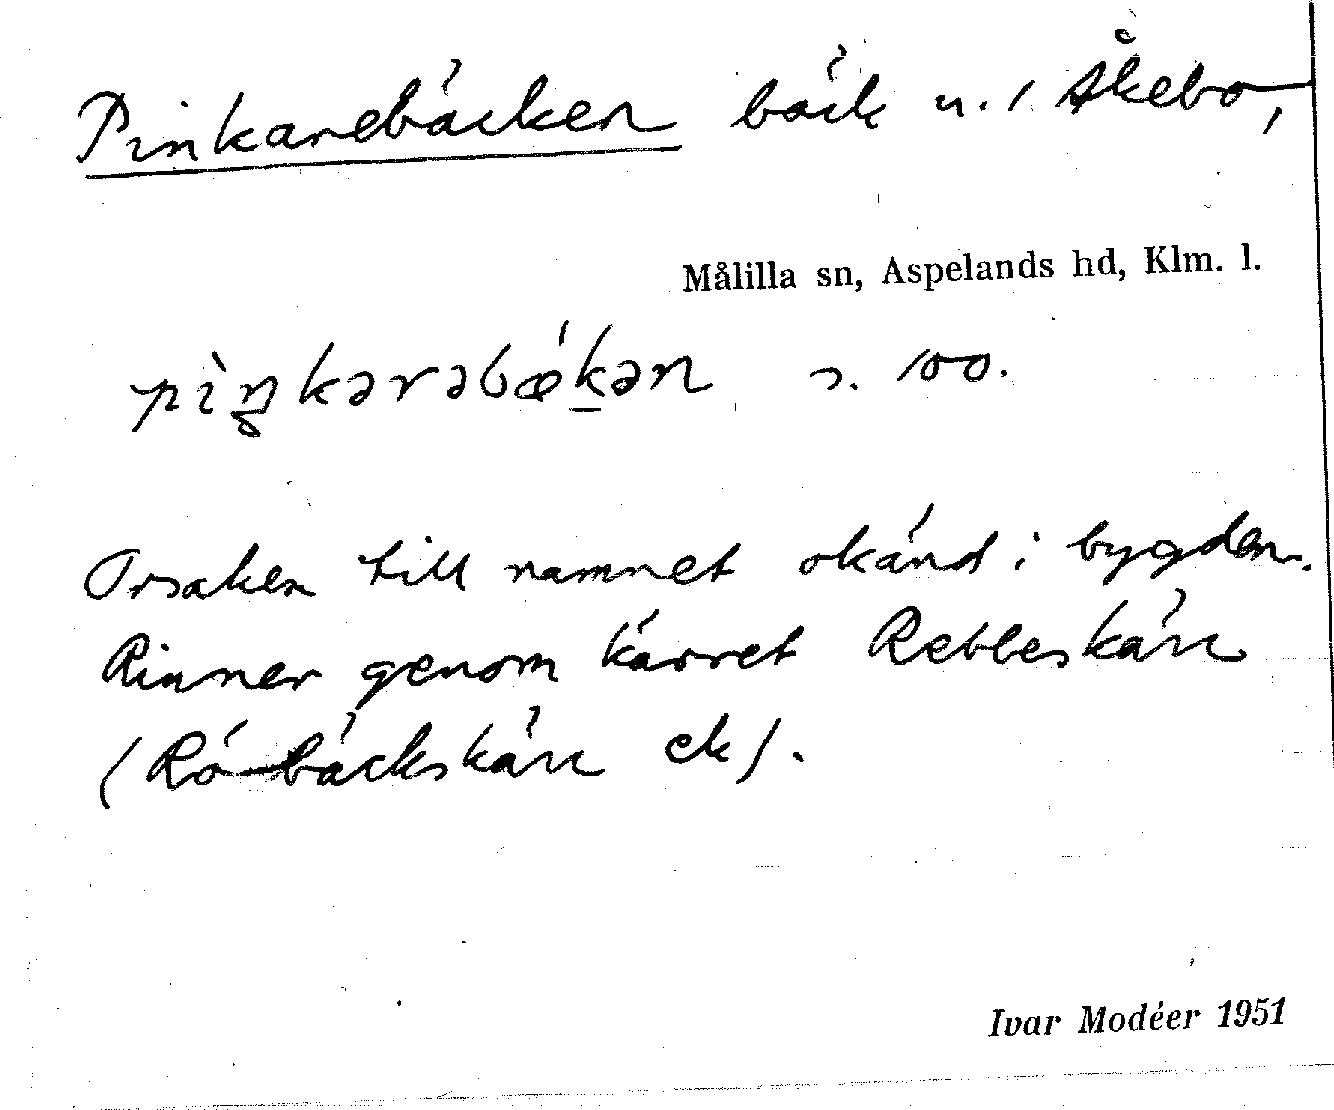 Pinkarebäcken bäck u. 1 Åkebo,
Målilla sn, Aspelands hd, Klm. l.
pìŋkərəbǽk̠ən ɔ. 100.
Orsaken till namnet okänd i bygden.
Rinner genom kärret Rebbeskärr
(Rö-bäckskärr ek).
Ivar Modéer 1951